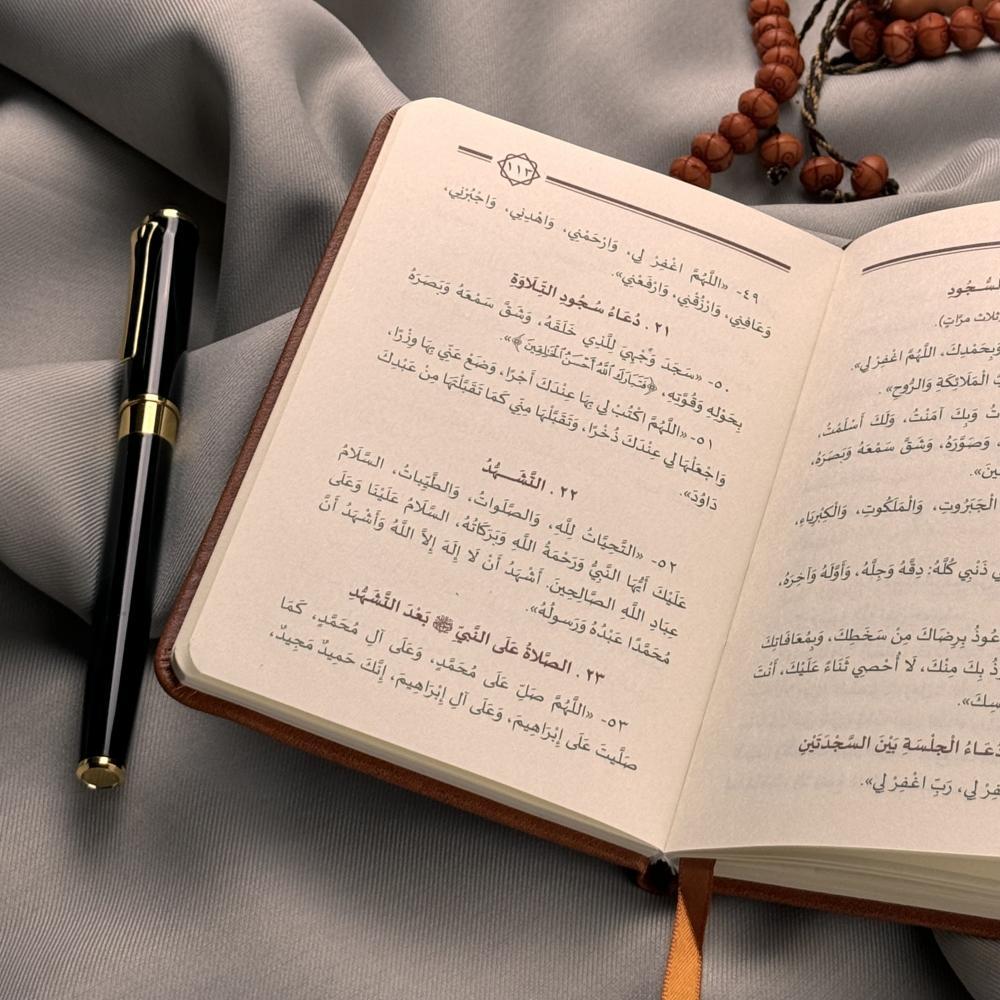 السُّجُودِ
ثلاثَ مرَّاتٍ).
وَبِحَمْدِكَ، اللَّهُمَّ اغْفِرْ لِي».
الْمَلَائِكَةِ وَالرُّوحِ»
وَبِكَ آمَنْتُ، وَلَكَ أَسْلَمْتُ،
وَصَوَّرَهُ، وَشَقَّ سَمْعَهُ وَبَصَرَهُ،
الْجَبَرُوتِ، وَالْمَلَكُوتِ، وَالْكِبْرِيَاءِ،
ذَنْبِي كُلَّهُ: دِقَّهُ وَجِلَّهُ، وَأَوَّلَهُ وَآخِرَهُ،
بِرِضَاكَ مِنْ سَخَطِكَ، وَبِمُعَافَاتِكَ
بِكَ مِنْكَ، لَا أُحْصِي ثَنَاءً عَلَيْكَ، أَنْتَ
دُعَاءُ الْجِلْسَةِ بَيْنَ السَّجْدَتَيْنِ
لِي، رَبِّ اغْفِرْ لِي».
١١٣
٤٩- «اللَّهُمَّ اغْفِرْ لِي، وَارْحَمْنِي، وَاهْدِنِي، وَاجْبُرْنِي،
وَعَافِنِي، وَارْزُقْنِي، وَارْفَعْنِي».
٢١. دُعَاءُ سُجُودِ التِّلَاوَةِ
٥٠- «سَجَدَ وَجْهِيَ لِلَّذِي خَلَقَهُ، وَشَقَّ سَمْعَهُ وَبَصَرَهُ
بِحَوْلِهِ وَقُوَّتِهِ، ﴿فَتَبَارَكَ اللَّهُ أَحْسَنُ الْخَالِقِينَ﴾».
٥١- «اللَّهُمَّ اكْتُبْ لِي بِهَا عِنْدَكَ أَجْرًا، وَضَعْ عَنِّي بِهَا وِزْرًا،
وَاجْعَلْهَا لِي عِنْدَكَ ذُخْرًا، وَتَقَبَّلْهَا مِنِّي كَمَا تَقَبَّلْتَهَا مِنْ عَبْدِكَ
دَاوُدَ».
٢٢. التَّشَهُّدُ
٥٢- «التَّحِيَّاتُ لِلَّهِ، وَالصَّلَوَاتُ، وَالطَّيِّبَاتُ، السَّلَامُ
عَلَيْكَ أَيُّهَا النَّبِيُّ وَرَحْمَةُ اللَّهِ وَبَرَكَاتُهُ، السَّلَامُ عَلَيْنَا وَعَلَى
عِبَادِ اللَّهِ الصَّالِحِينَ. أَشْهَدُ أَنْ لَا إِلَهَ إِلاَّ اللَّهُ وَأَشْهَدُ أَنَّ
مُحَمَّدًا عَبْدُهُ وَرَسولُهُ».
٢٣. الصَّلاةُ عَلَى النَّبِيِّ ﷺ بَعْدَ التَّشَهُّدِ
٥٣- «اللَّهُمَّ صَلِّ عَلَى مُحَمَّدٍ، وَعَلَى آلِ مُحَمَّدٍ، كَمَا
صَلَّيْتَ عَلَى إِبْرَاهِيمَ، وَعَلَى آلِ إِبْرَاهِيمَ، إِنَّكَ حَمِيدٌ مَجِيدٌ،